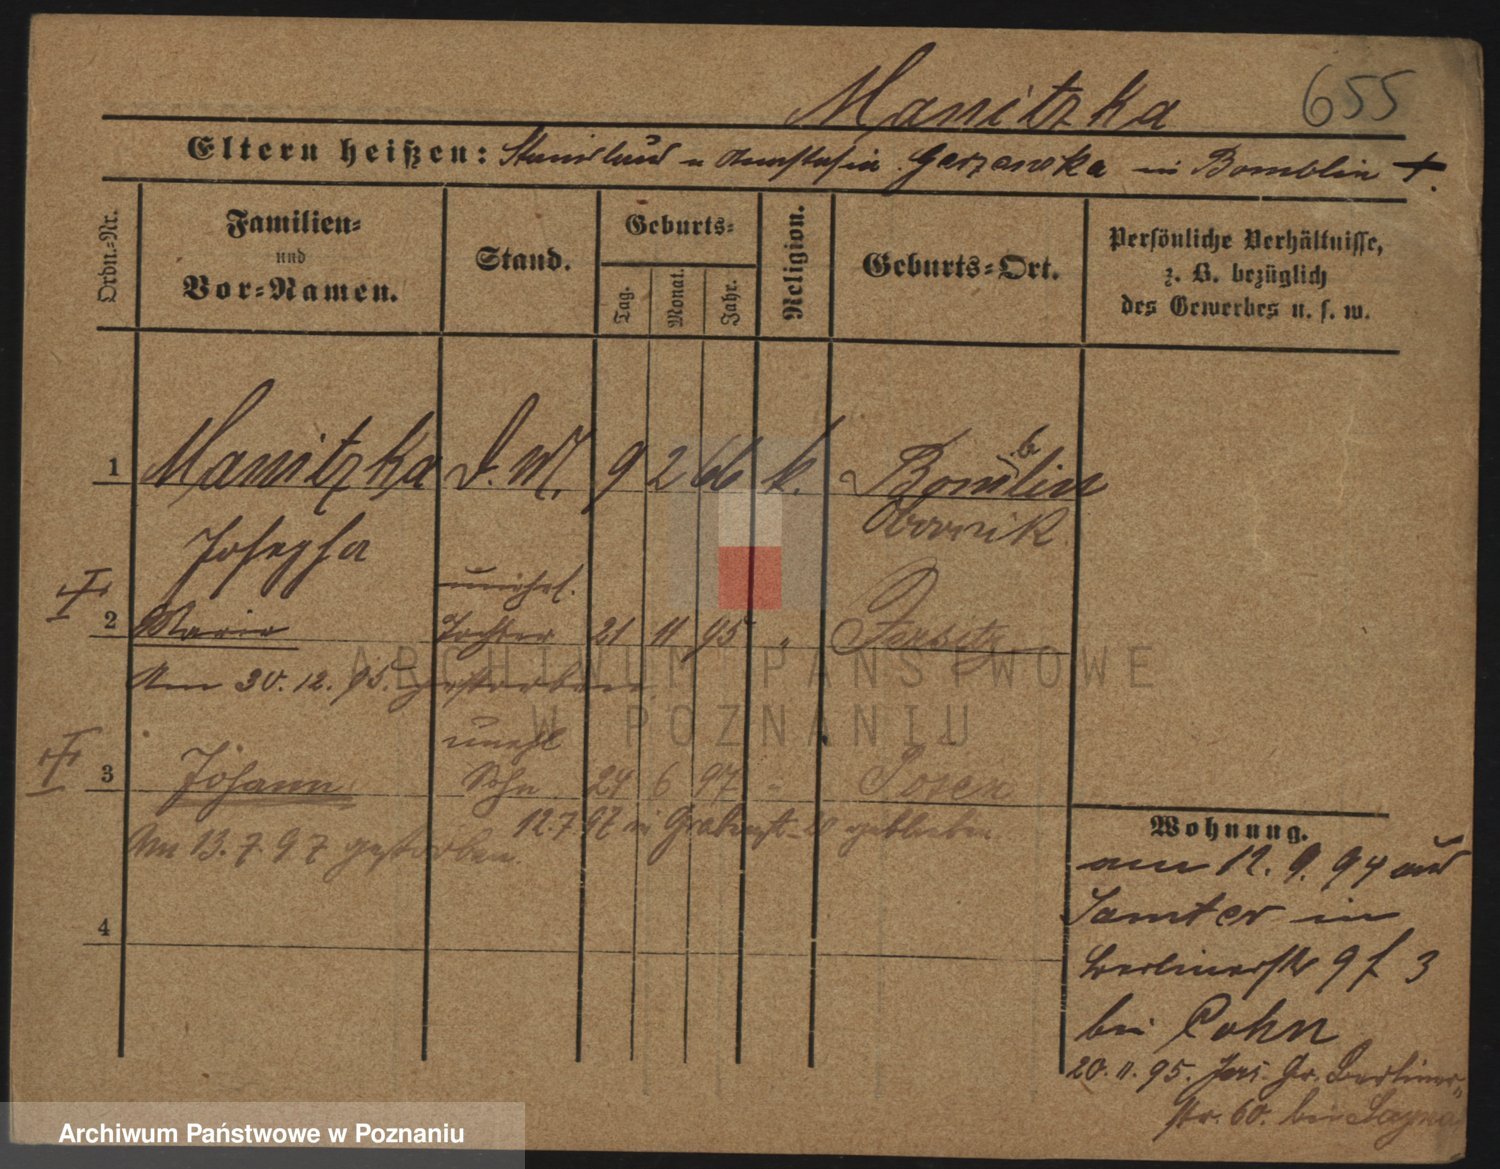 Manitzka 655
Eltern heißen: Stanislaus u Anastasia Garzanska in Bomblin †.
Ordn.-Nr.
Familien- und Vor-Namen.
Stand.
Geburts-
Tag. Monat. Jahr.
Religion.
Geburts-Ort.
Persönliche Verhältnisse,
z. B. bezüglich
des Gewerbes u. s. w.
1 Manitzka D. M. 9 2 66 k. Bomblin
Josepha Obornik
unehel.
2 Marie Tochter 21 11 95 " Jersitz
Am 30. 12. 95. gestorben
unehl
3 Johann Sohn 24 6 97 " Posen
12.7.97 in geblieben
Am 13. 7. 97 gestorben
4
Wohnung.
am 12. 9. 94 aus
Samter in
Berlinerstr 9 f 3
bei Cohn
20. 11. 95. Jers. Gr. Berliner-
str. 60. bei
ARCHIWUM PAŃSTWOWE
W POZNANIU
Archiwum Państwowe w Poznaniu